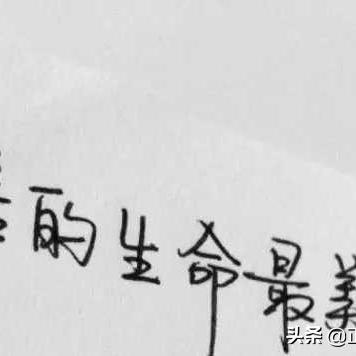 的生命最美
头条 @